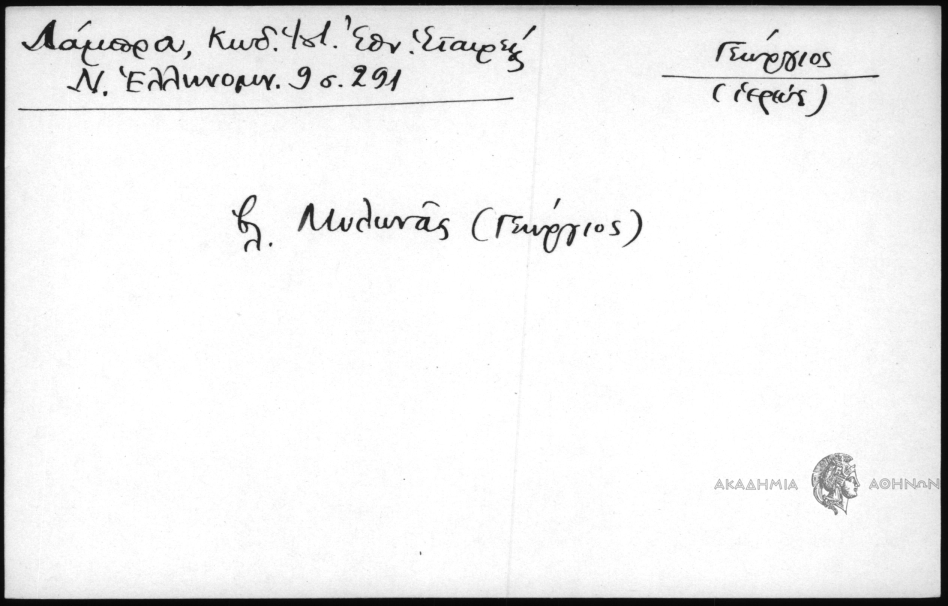 Λάμπρα, Κωδ. Ἱστ. Ἐθν. Ἑταιρείας
Ν. Ἑλληνομν. 9 σ. 291
Γεώργιος
(ἱερεύς)
βλ. Μυλωνᾶς (Γεώργιος)
ΑΚΑΔΗΜΙΑ ΑΘΗΝΩΝ